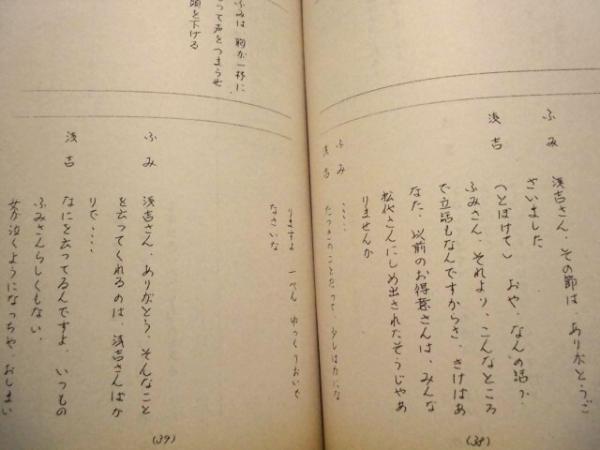 ふみ 浅吉さん、その節は、ありがとうご
ざいました
浅吉 (とぼけて) おや、なんの話か、
ふみさん、それより、こんなところ
で立話もなんですからさ、さけはあ
なた、以前のお得意さんは、みんな
松代さんにしめ出されたそうじゃあ
りませんか
ふみ ‥‥
浅吉 たったこたことだって、少しはカにな
りますよ 一ぺん ゆっくりおいで
なさいな
ふみは 胸が一杯に
って声をつまらせ
頭を下げる
ふみ 浅吉さん、ありがとう、そんなこと
を云ってくれるのは、浅吉さんばか
りで‥‥
浅吉 なにを云ってるんですよ いつもの
ふみさんらしくもない、
が泣くようになっちゃ、おしまい
(38)
(39)